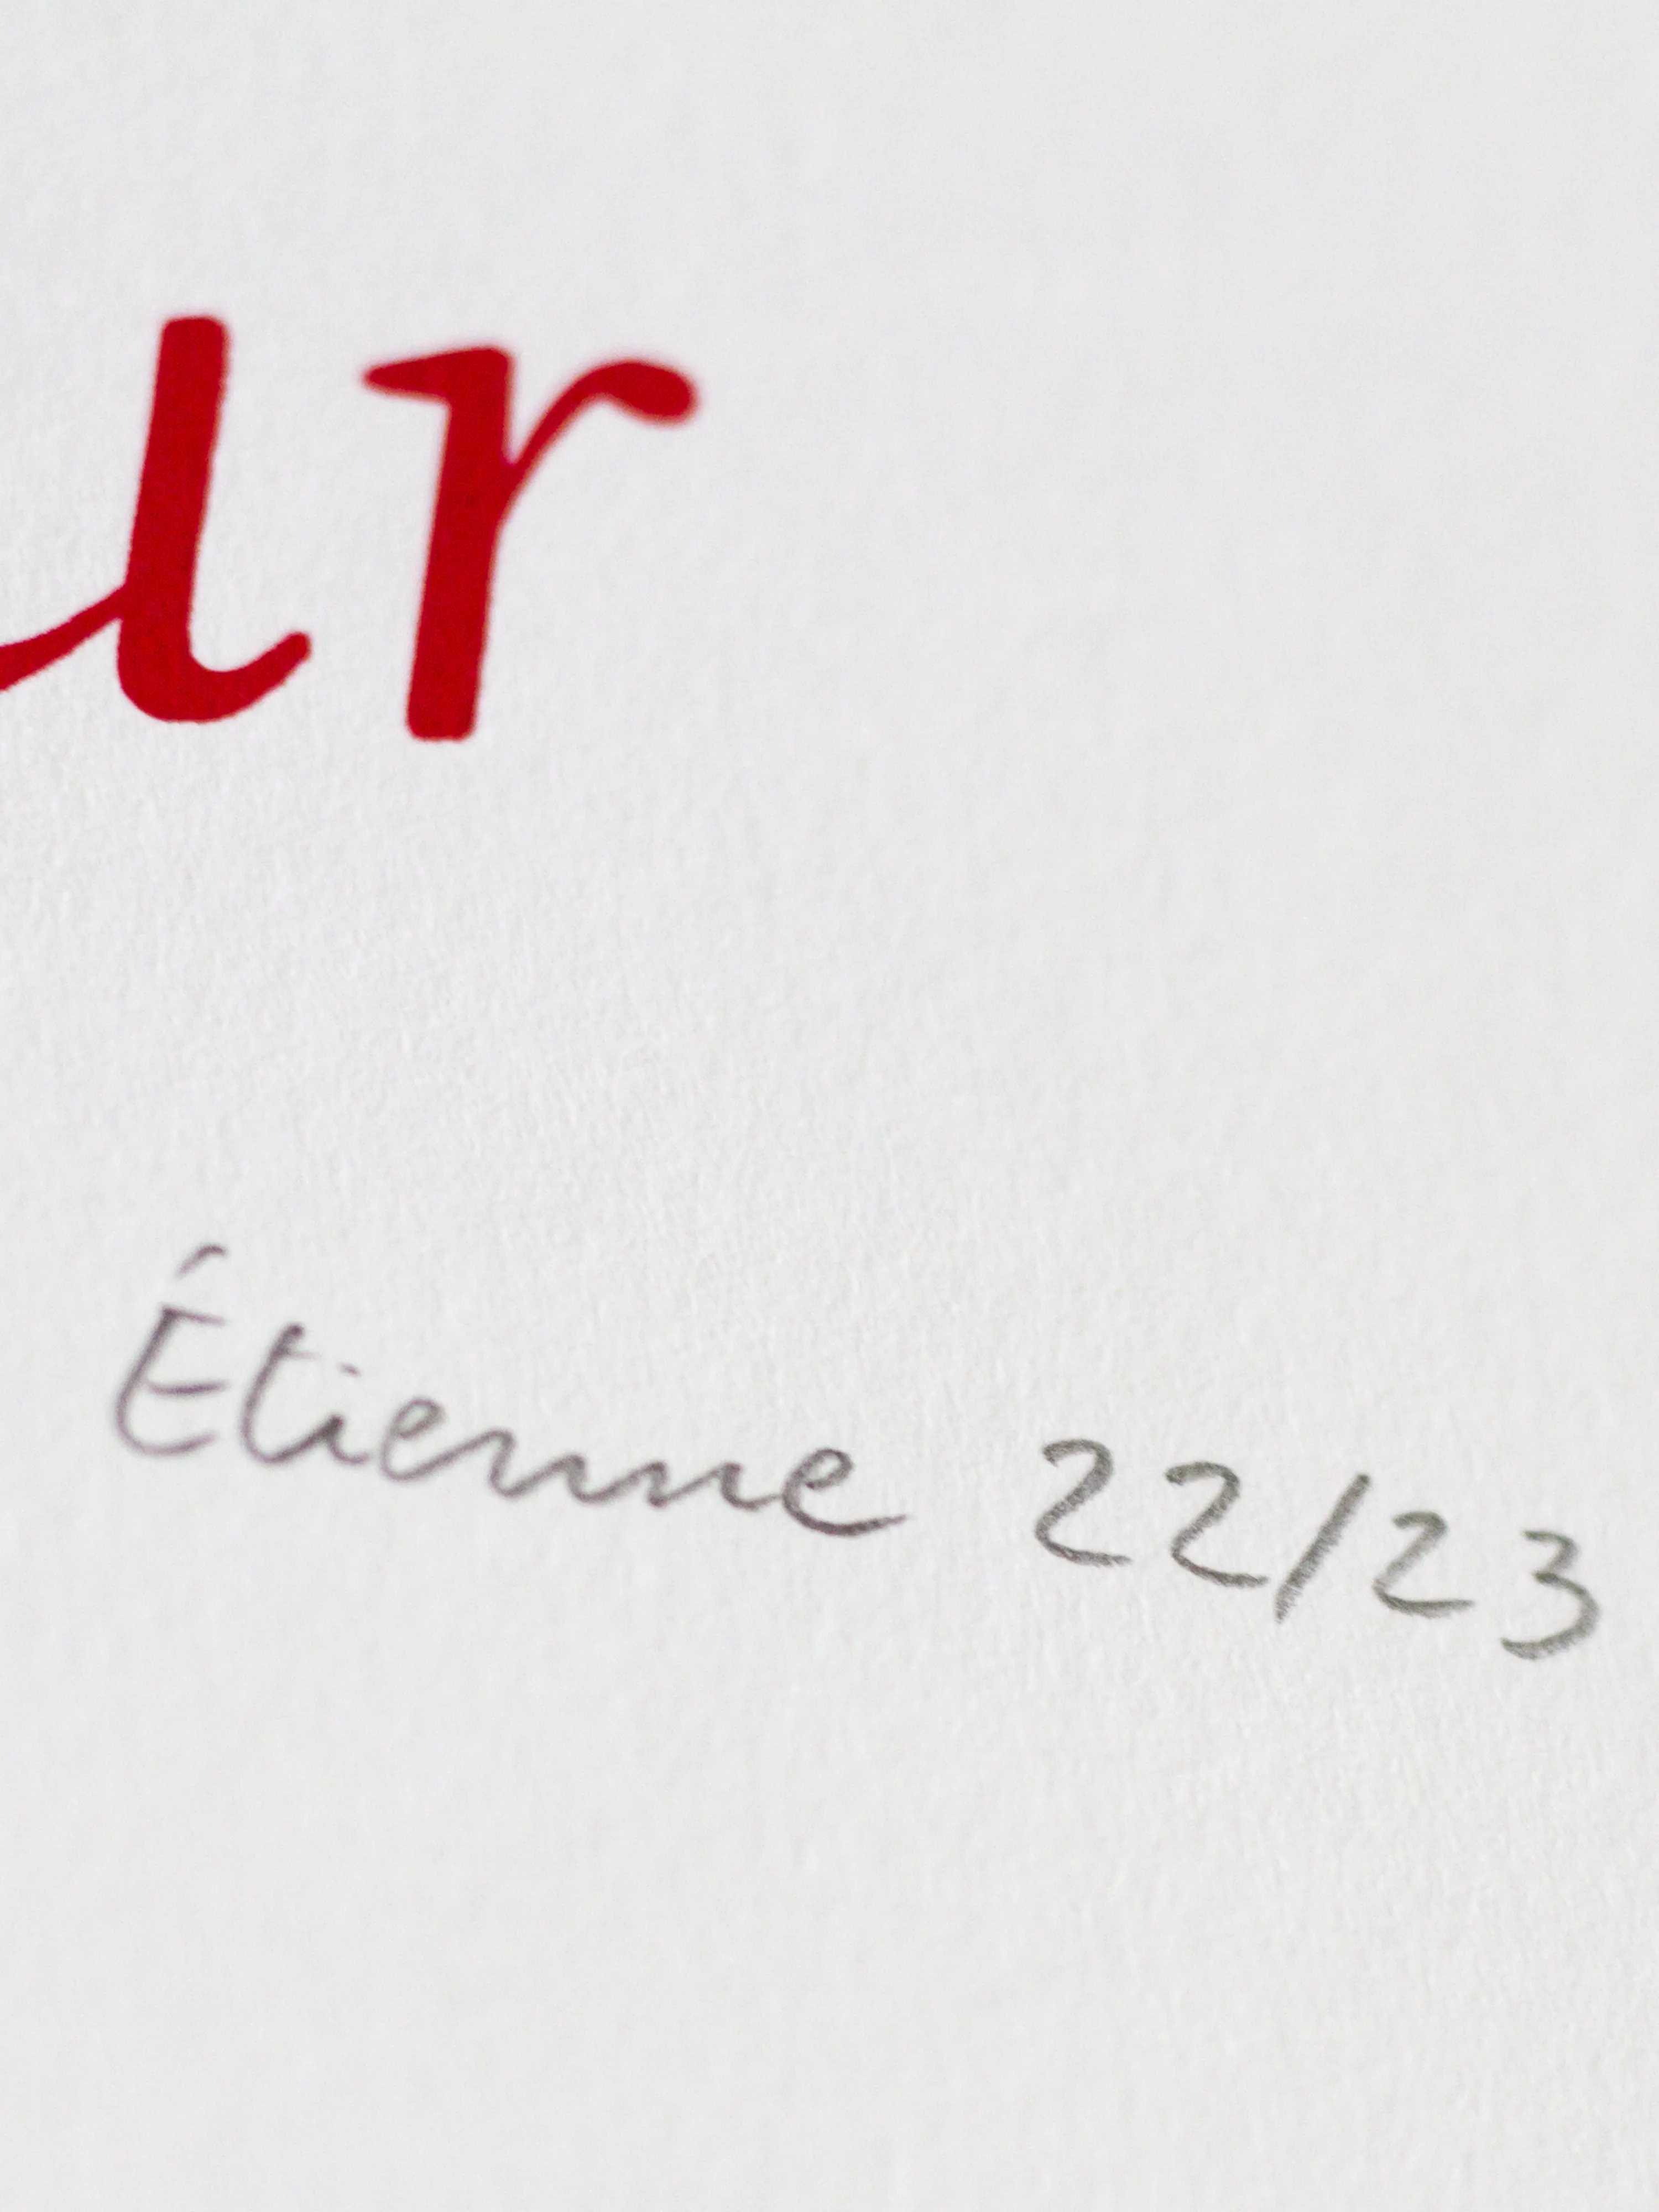 ur
Étienne 22/23